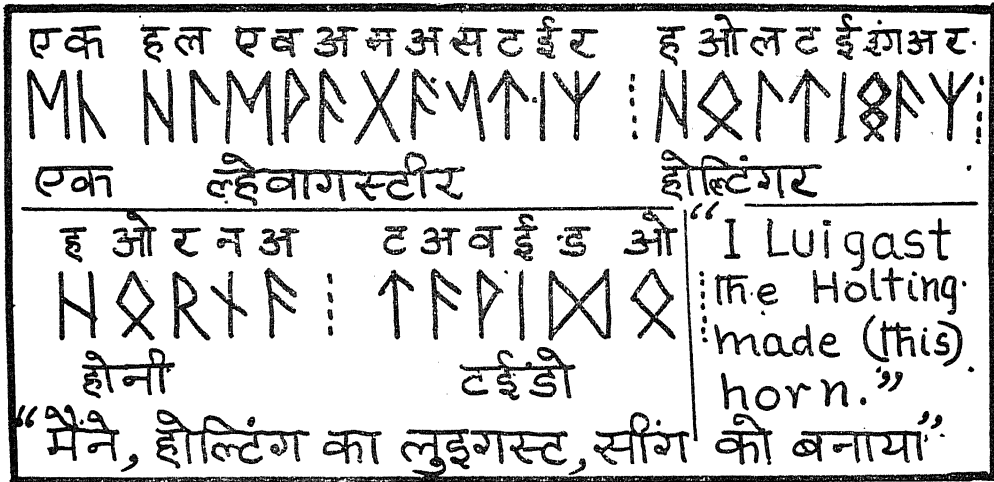 एक हल एव अ ग अ स ट ई र ह ओ ल ट ई इंग अ र
ᛖᚲ ᚺᛚᛖᚹᚨᚷᚨᛊᛏᛁᛉ ⁝ ᚺᛟᛚᛏᛁᛜᚨᛉ ⁝
एक ल्हेवागस्टीर होल्टिंगर
ह ओ र न अ ट अ व ई ड ओ
ᚺᛟᚱᚾᚨ ⁝ ᛏᚨᚹᛁᛞᛟ ⁝
होनी टईंडो
“I Luigast
the Holting
made (this)
horn.”
“मैंने, होल्टिंग का लुइगस्ट, सींग को बनाया”